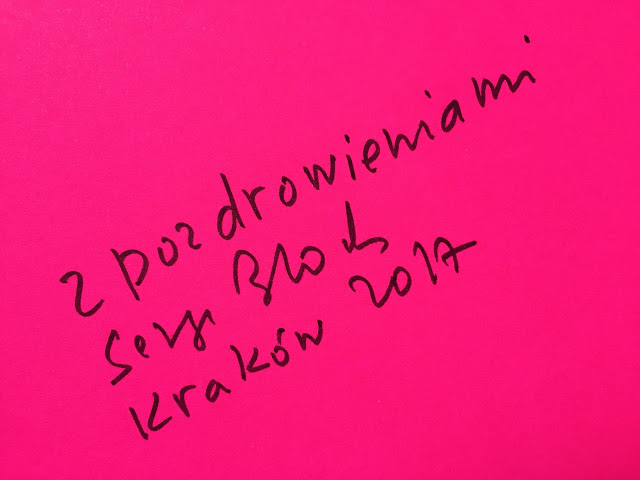 z pozdrowieniami
Serge Bloch
Kraków 2017